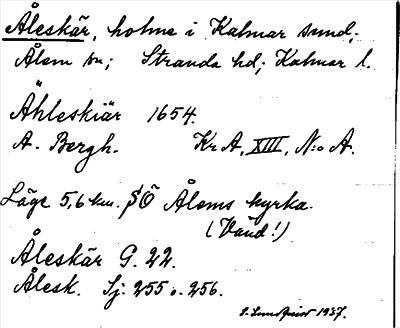 Åleskär, holme i Kalmar sund;
Ålem sn; Stranda hd; Kalmar l.
Åhleskiär 1654.
A. Bergh. Kr A, XIII, N:o A.
Läge 5,6 km. SÖ Ålems kyrka.
(Vänd!)
Åleskär G. 22.
Ålesk. Sj. 255 o. 256.
1937.